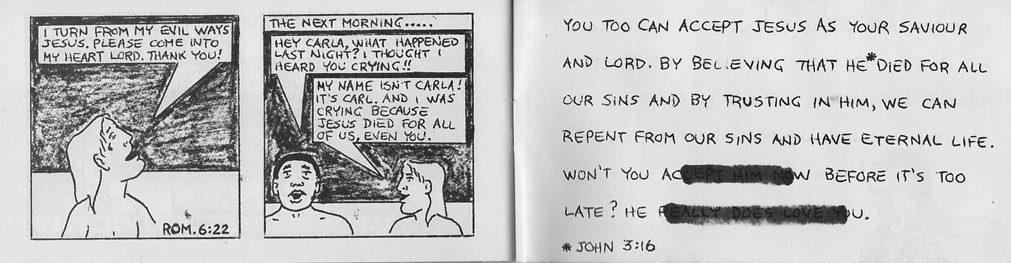 I TURN FROM MY EVIL WAYS
JESUS. PLEASE COME INTO
MY HEART LORD. THANK YOU!
ROM. 6:22
THE NEXT MORNING.....
HEY CARLA, WHAT HAPPENED
LAST NIGHT? I THOUGHT I
HEARD YOU CRYING!!
MY NAME ISN'T CARLA!
IT'S CARL. AND I WAS
CRYING BECAUSE
JESUS DIED FOR ALL
OF US, EVEN YOU.
YOU TOO CAN ACCEPT JESUS AS YOUR SAVIOUR
AND LORD. BY BELIEVING THAT HE* DIED FOR ALL
OUR SINS AND BY TRUSTING IN HIM, WE CAN
REPENT FROM OUR SINS AND HAVE ETERNAL LIFE.
WON'T YOU ACCEPT HIM NOW BEFORE IT'S TOO
LATE? HE REALLY DOES LOVE YOU.
* JOHN 3:16